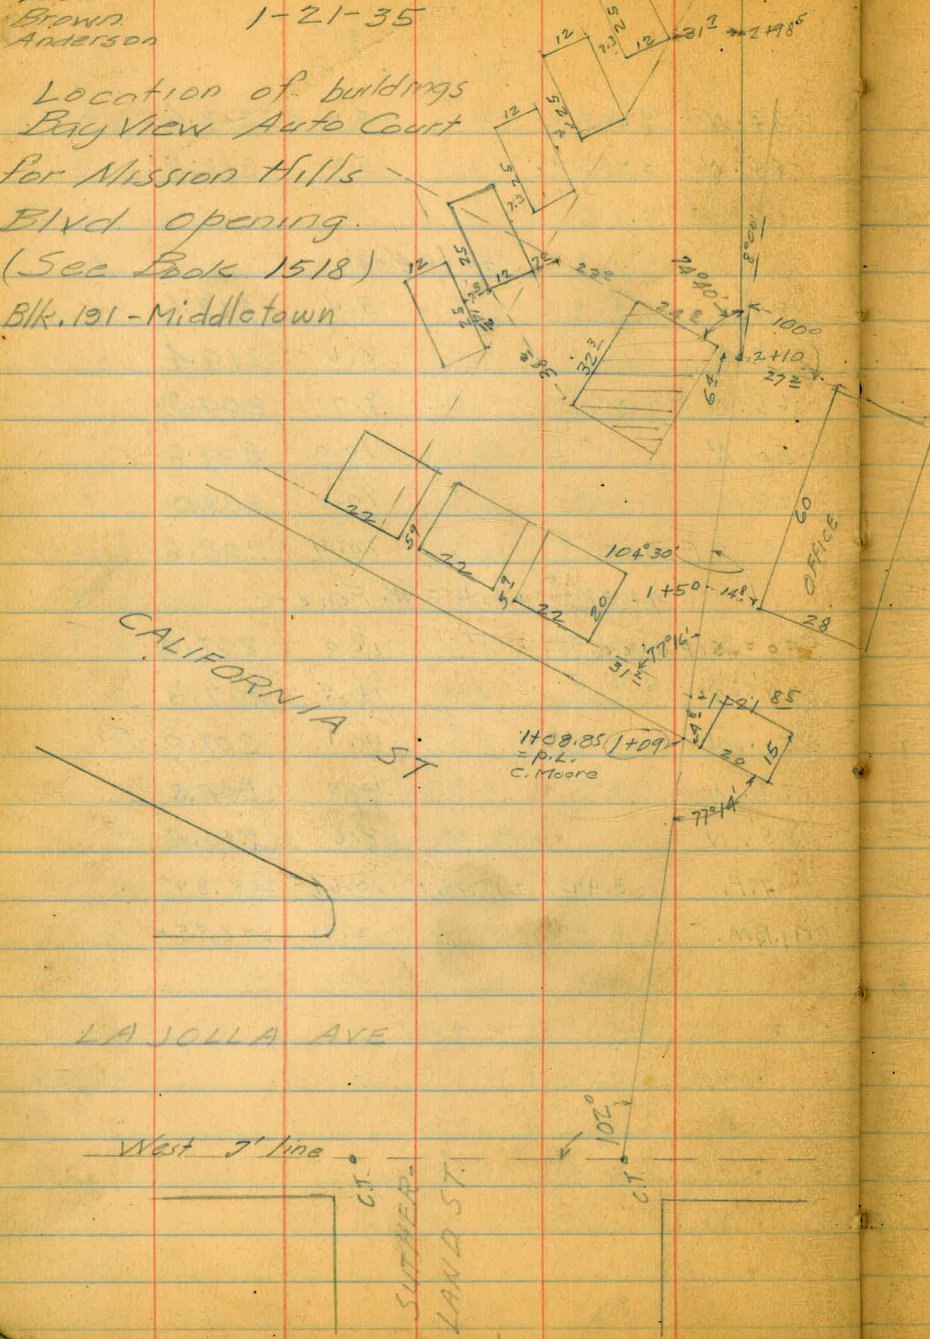 Brown
Anderson
1-21-35
Location of buildings
Bay View Auto Court
for Mission Hills
Blvd. opening.
(See Book 1518)
Blk. 191 - Middletown
12
25
12
31⁷
2+98⁵
12
25
7.3
12
25
7.3
25
12
12
25
38²
32³
22⁸
74°40'
8°00'
10⁰⁰
2+10
27³
6⁴
60
OFFICE
28
22
5⁹
22
5⁹
22
20
104°30'
1+50
14⁸
77°15'
31
1+21
85
4⁸
20
15
1+08.85
1+09
= P.L.
C. Moore
77°14'
CALIFORNIA ST
LA JOLLA AVE
West 7' line
C.T.
102°
C.T.
SUTHER-
LAND ST.